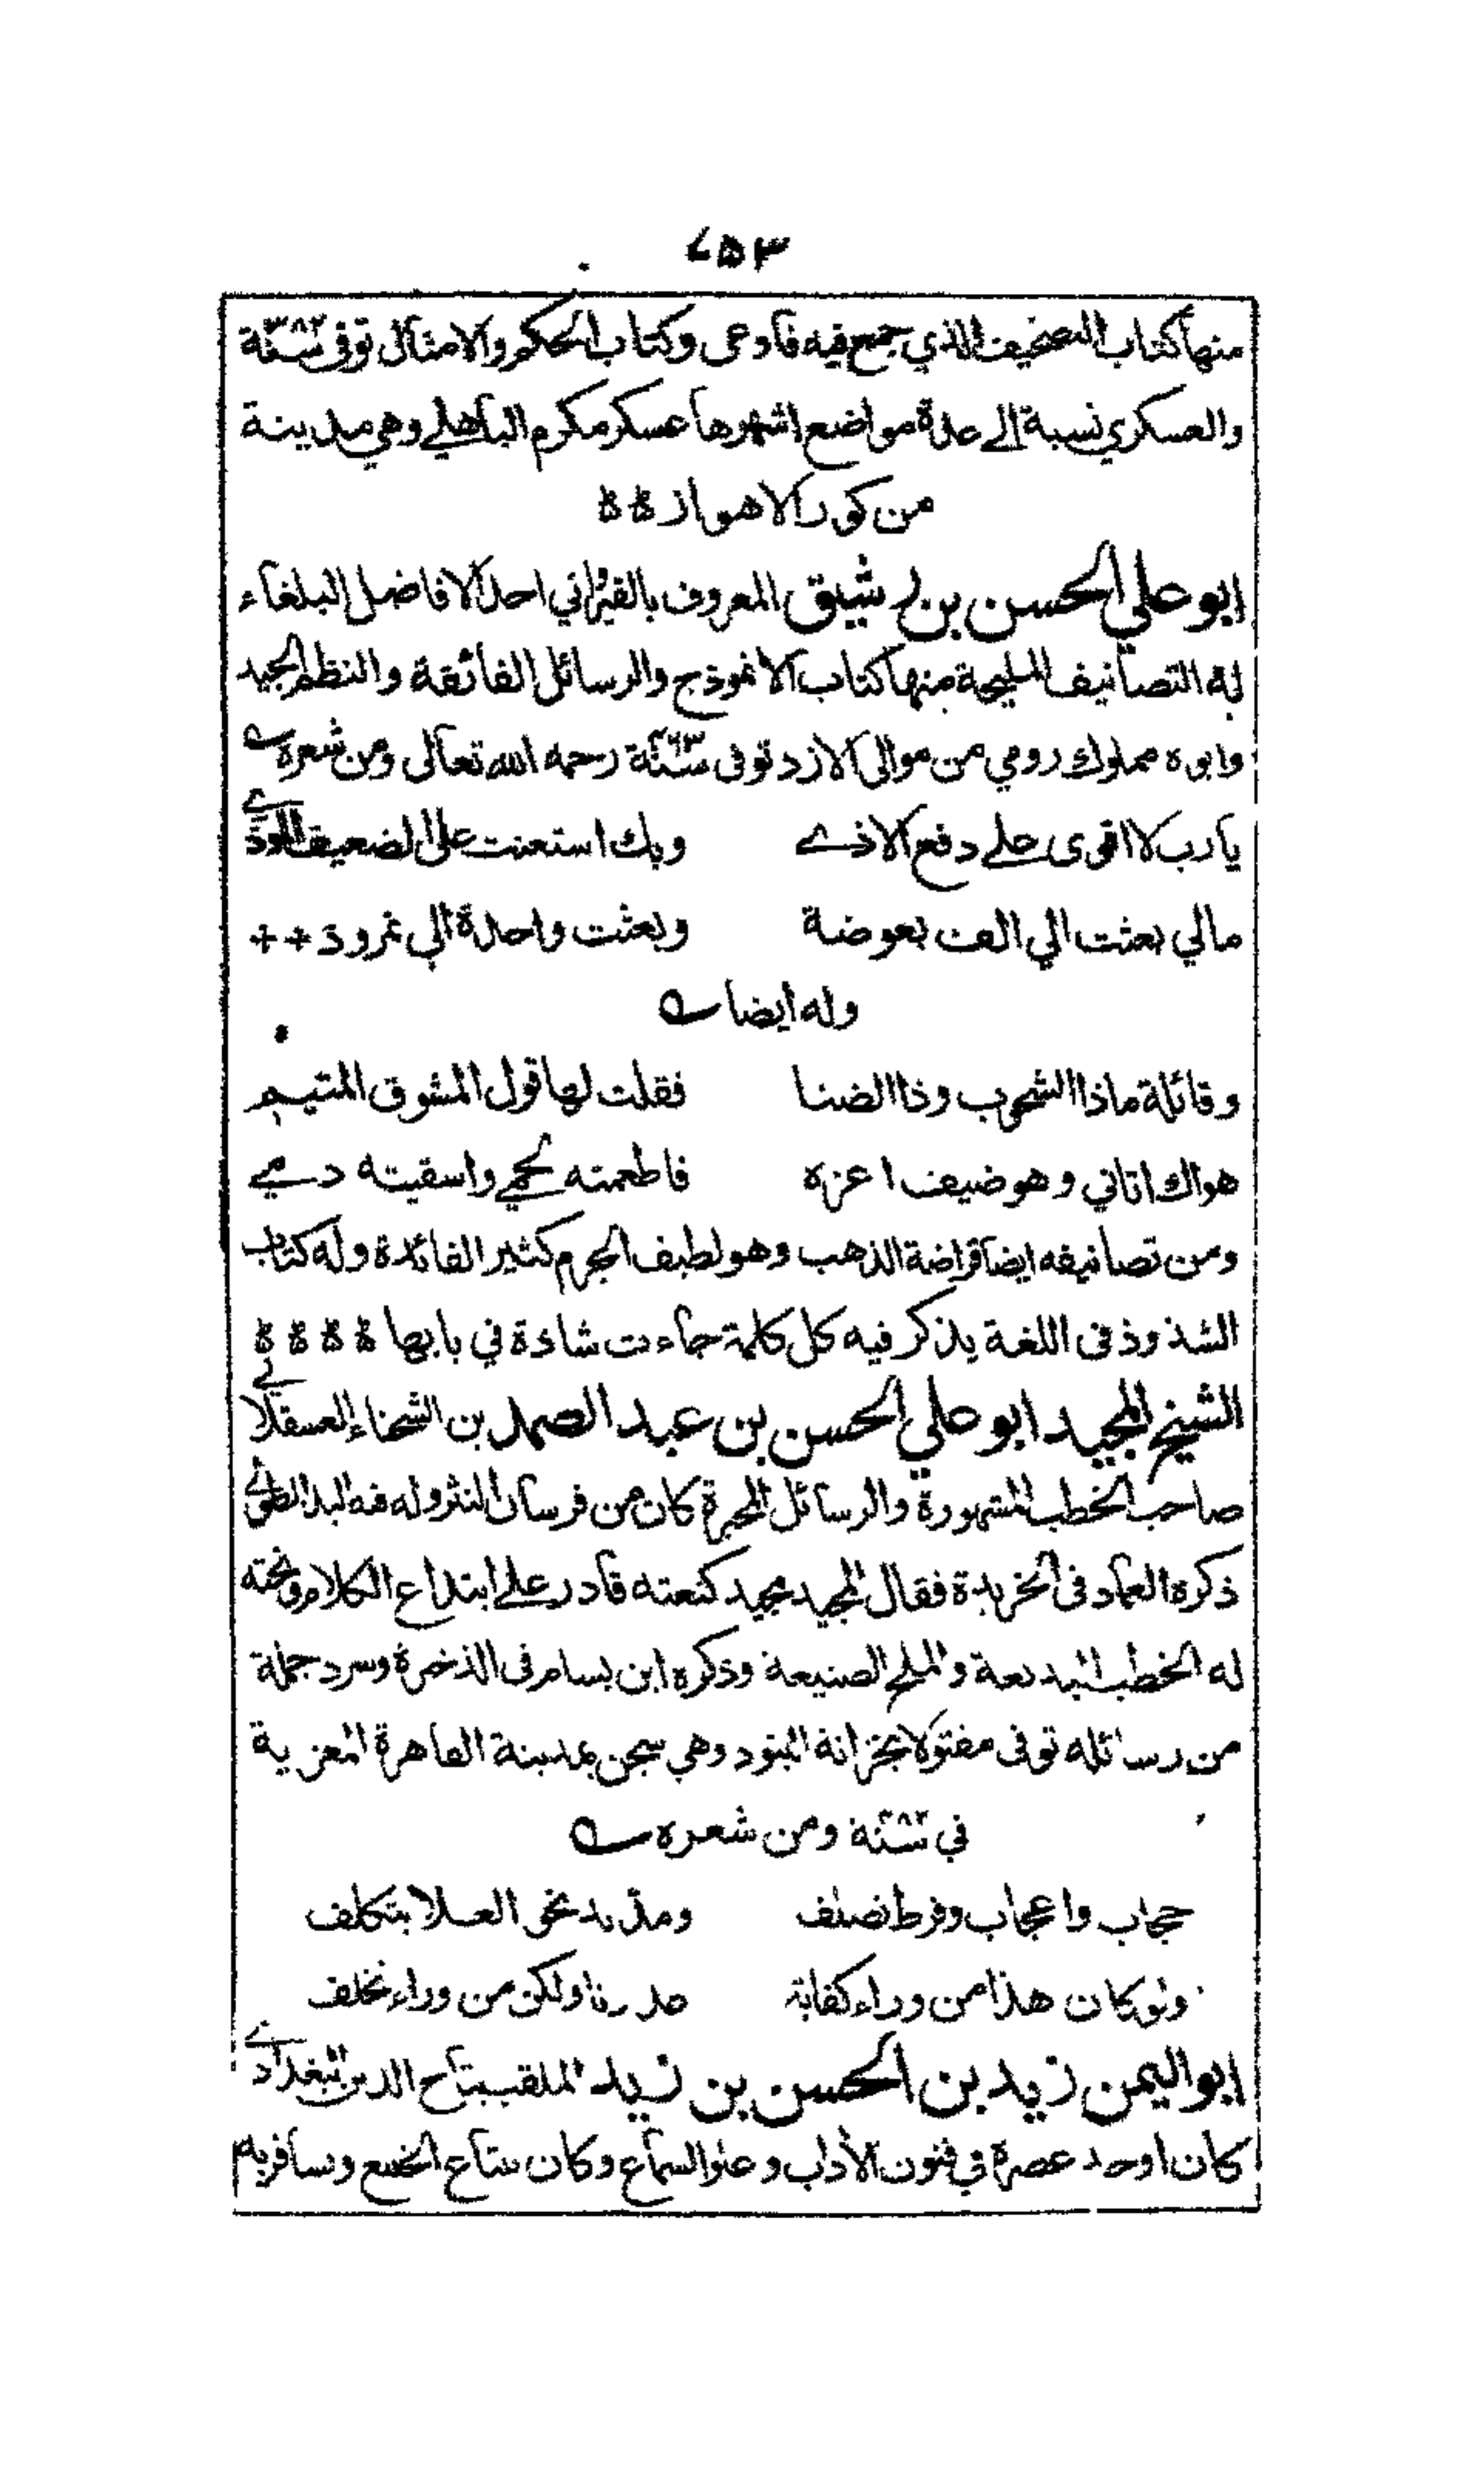 ٧٥٣
منها كتاب التصحيف الذي جمع فيه فأوعى وكتاب الحكم والامثال توفى سنة ٣٨٢
والعسكري نسبة الى عدة مواضع اشهرها عسكر مكرم الباهلي وهي مدينة
من كور الاهواز ة ة
ابو علي الحسن بن رشيق المعروف بالقيرواني احد الافاضل البلغاء
له التصانيف المليحة منها كتاب الانموذج والرسائل الفائقة والنظم الجيد
وابوه مملوك رومي من موالى الازد توفى سنة ٤٦٣ رحمه الله تعالى ومن شعره
يارب لا اقوى على دفع الاذے وبك استعنت على الضعيف الموذے
مالي بعثت الي الف بعوضة وبعثت واحدة الي نمروذ ++
وله ايضا
وقائلة ماذا الشحوب وذا الضنا فقلت لها قول المشوق المتيم
هواك اتاني وهو ضيف اعزه فاطعمته لحمے واسقيته دمے
ومن تصانيفه ايضا قراضة الذهب وهو لطيف الجرم كثير الفائدة وله كتاب
الشذوذ فى اللغة يذكر فيه كل كلمة جاءت شاذة في بابها ة ة ة ة
الشيخ المجيد ابو علي الحسن بن عبد الصمد بن الشخناء العسقلانے
صاحب الخطب المشهورة والرسائل المحبرة كان من فرسان النثر وله فيه اليد الطولے
ذكره العماد فى الخريدة فقال المجيد مجيد كنعته قادر على ابتداع الكلام ونحته
له الخطب البديعة والملح الصنيعة وذكره ابن بسام فى الذخيرة وسرد جملة
من رسائله توفى مقتولا بخزانة البنود وهي سجن بمدينة القاهرة المعزية
في سنة ٤٨٢ ومن شعره
حجاب واعجاب وفرط تصلف ومد يد نحو العلا بتكلف
ولو كان هذا من وراء كفاية عذرنا ولكن من وراء تخلف
ابو اليمن زيد بن الحسن بن زيد الملقب بتاج الدين البغدادے
كان اوحد عصره في فنون الآداب وعلو السماع وكان يبتاع الخليع ويسافر به